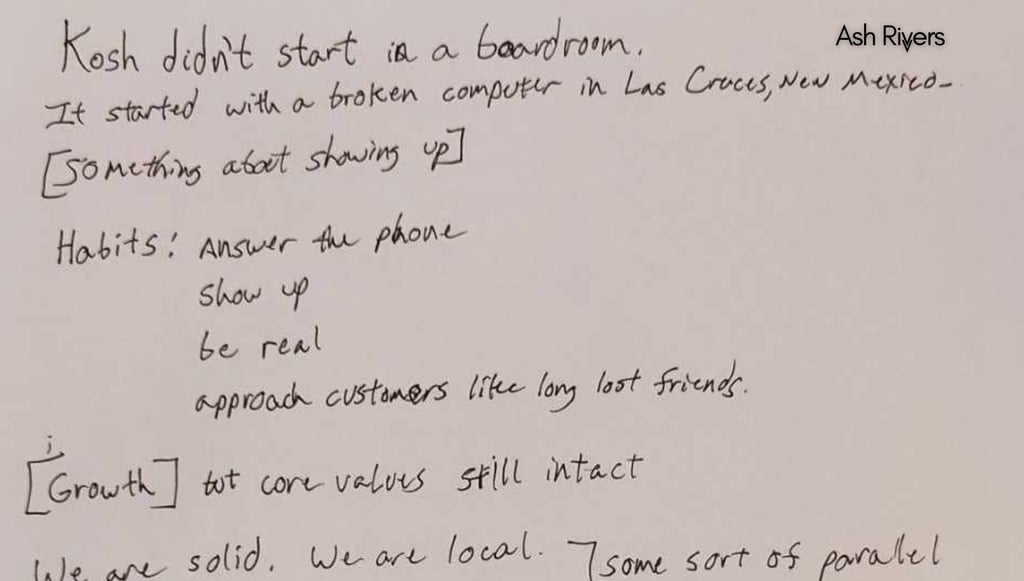 Ash Rivers
Kosh didn't start in a boardroom.
It started with a broken computer in Las Cruces, New Mexico-
[Something about showing up]
Habits: Answer the phone
show up
be real
approach customers like long lost friends.
[Growth] but core values still intact
We are solid. We are local. 7 some sort of parallel